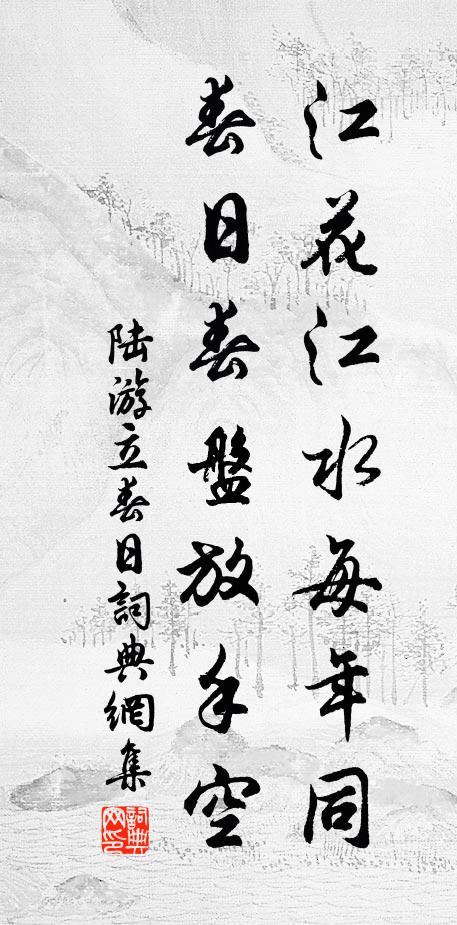 江花江水每年同
春日春盤放手空
陸游立春日詞典網集
詞典网印